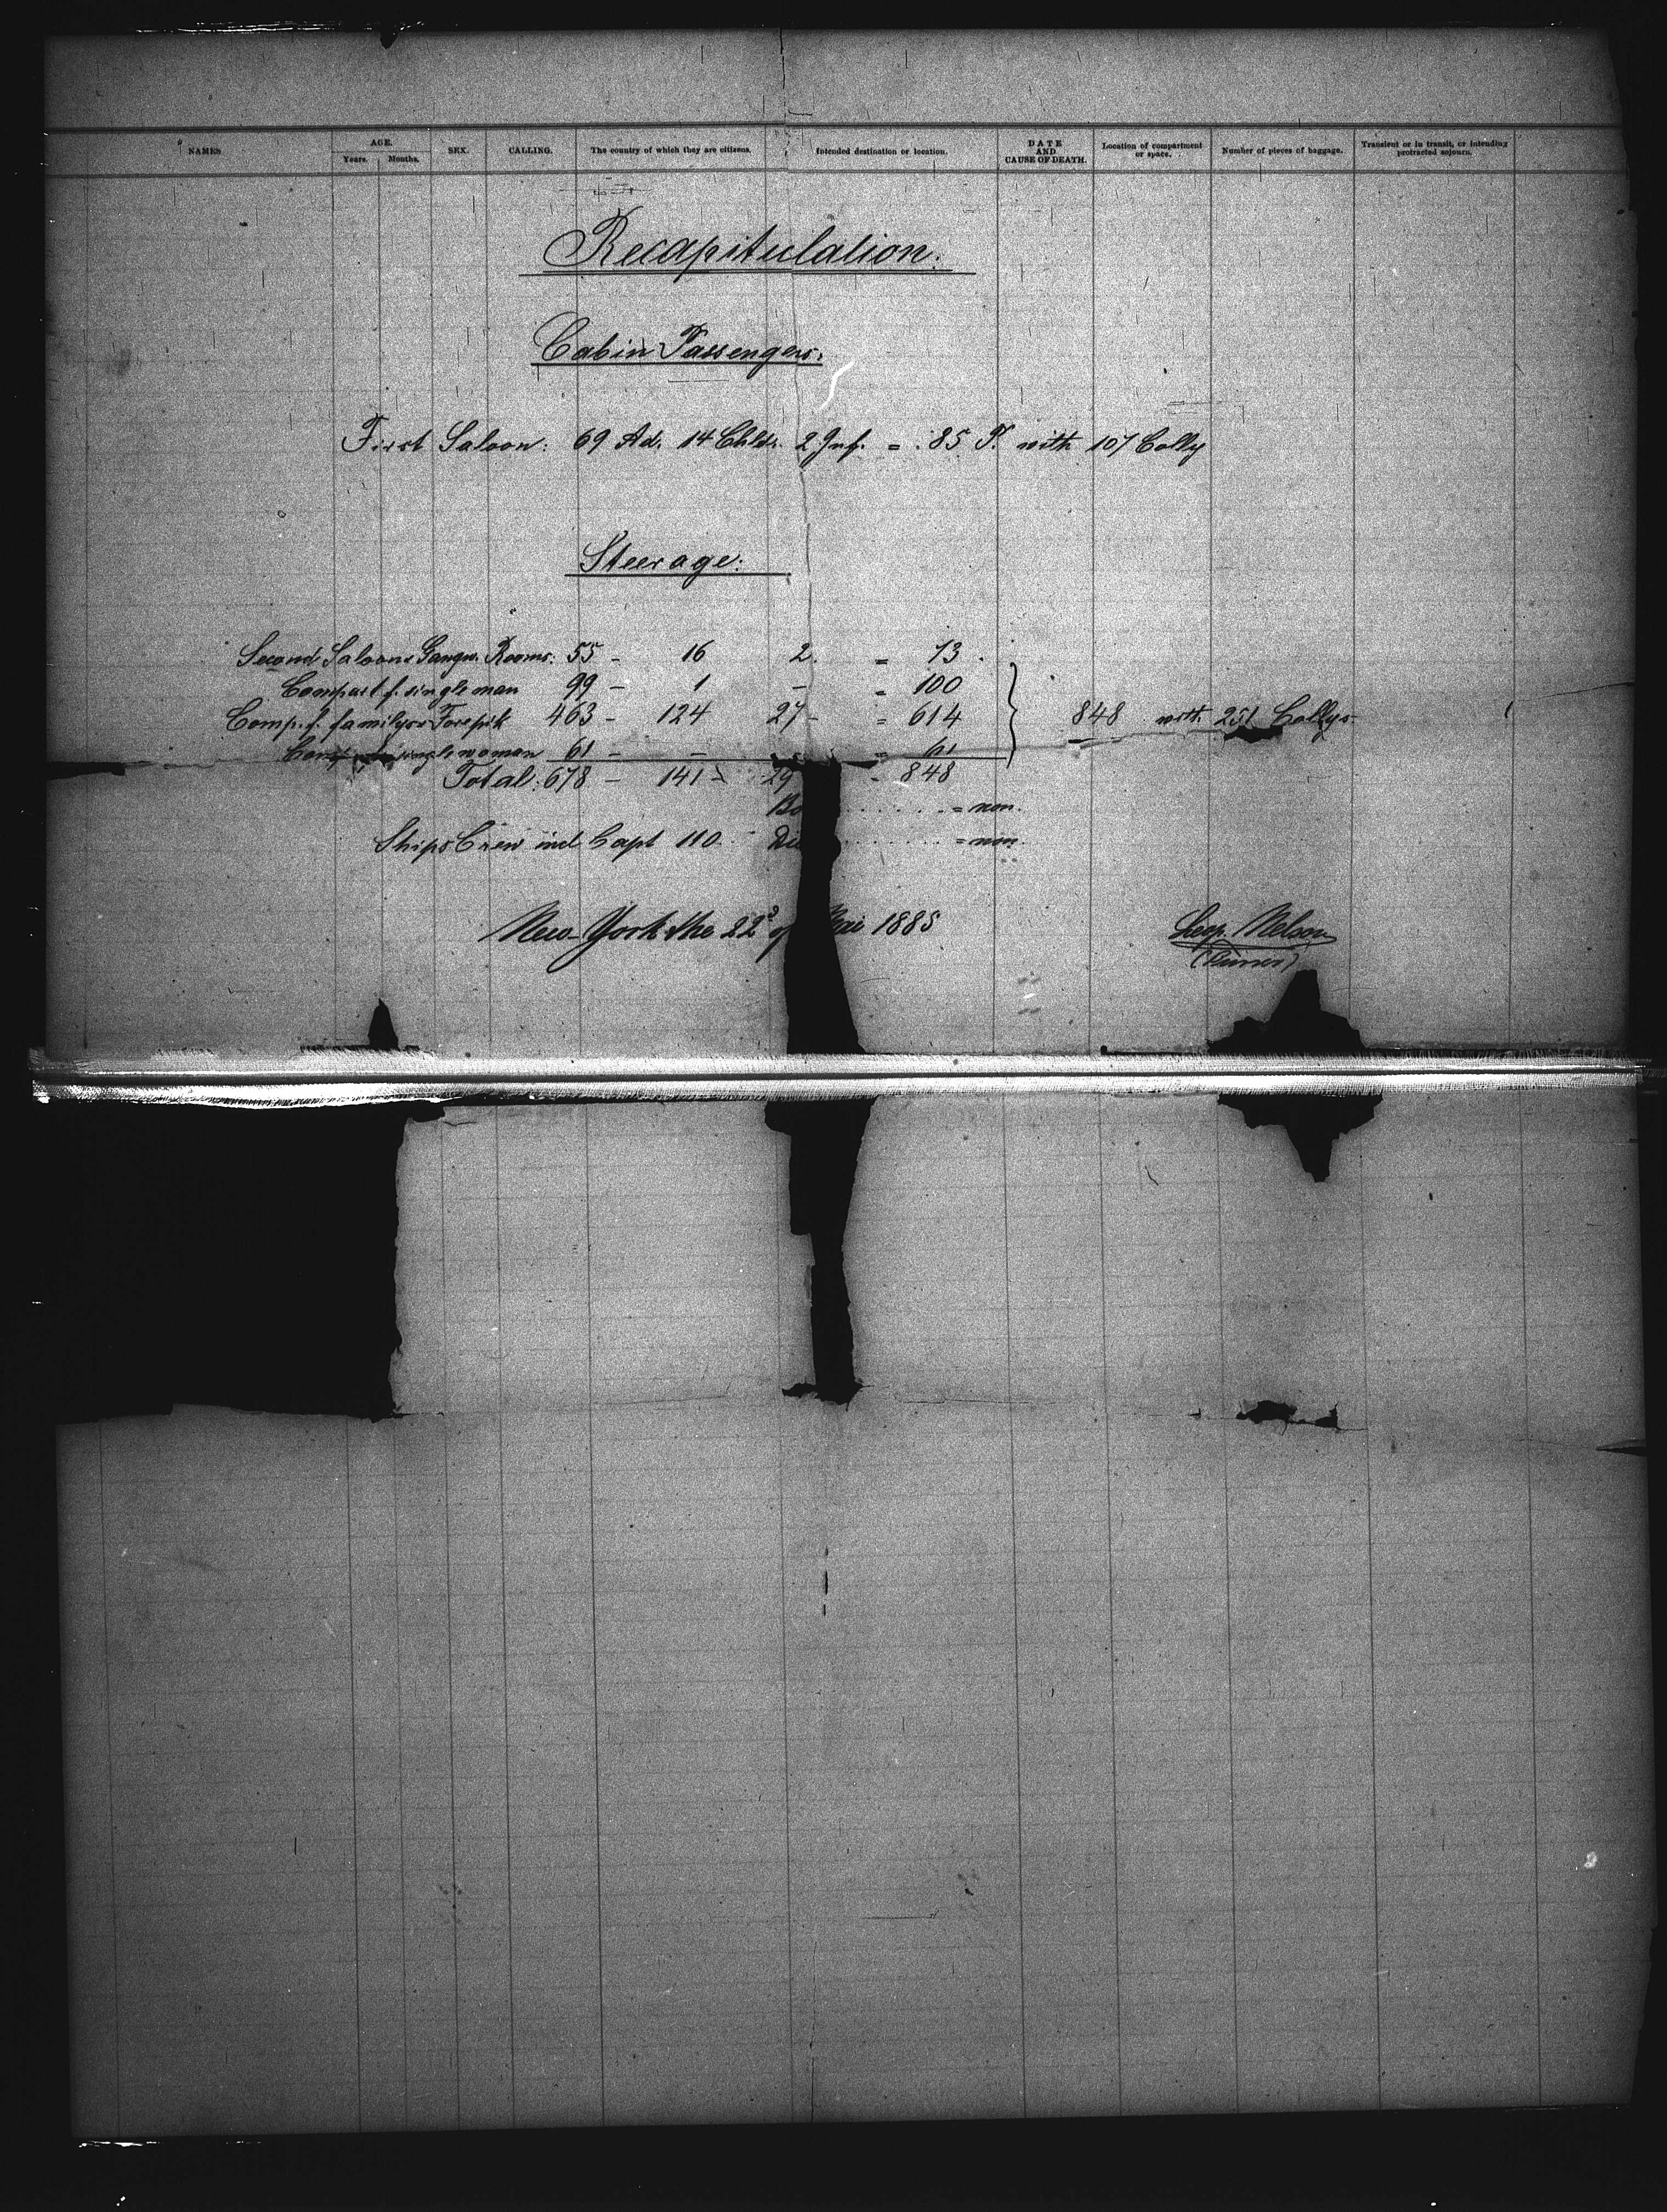 NAMES AGE. Years. Months. SEX. CALLING. The country of which they are citizens. Intended destination or location. DATE AND CAUSE OF DEATH. Location of compartment or space. Number of pieces of baggage. Transient or in transit, or intending protracted sojourn.
Recapitulation.
Cabin Passengers:
First Saloon: 69 Ad. 14 Chldr. 2 Inf. = 85 P. with 107 Colly
Steerage:
Second Saloon Rooms: 55 - 16 2 = 73
Compart f. single man 99 - 1 - = 100
Comp. f. family 463 - 124 27 - = 614 848 with 251 Collys
single woman 61 - - = 61
Total: 678 - 141 - 29 = 848
Bo = non.
Ships Crew incl Capt 110. Die = non.
New-York the 22d of Mai 1885
Leop. Nelson
(Purser)